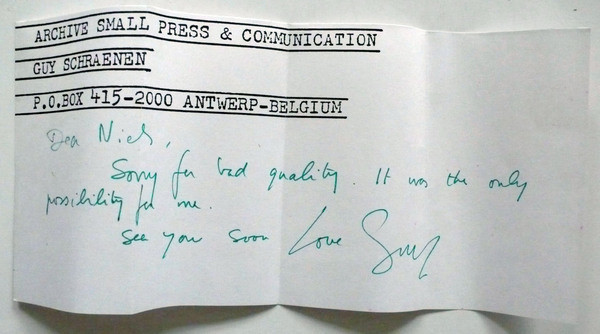 ARCHIVE SMALL PRESS & COMMUNICATION
GUY SCHRAENEN
P.O.BOX 415-2000 ANTWERP-BELGIUM
Dear Niels,
Sorry for bad quality. It was the only
possibility for me.
see you soon Love Guy